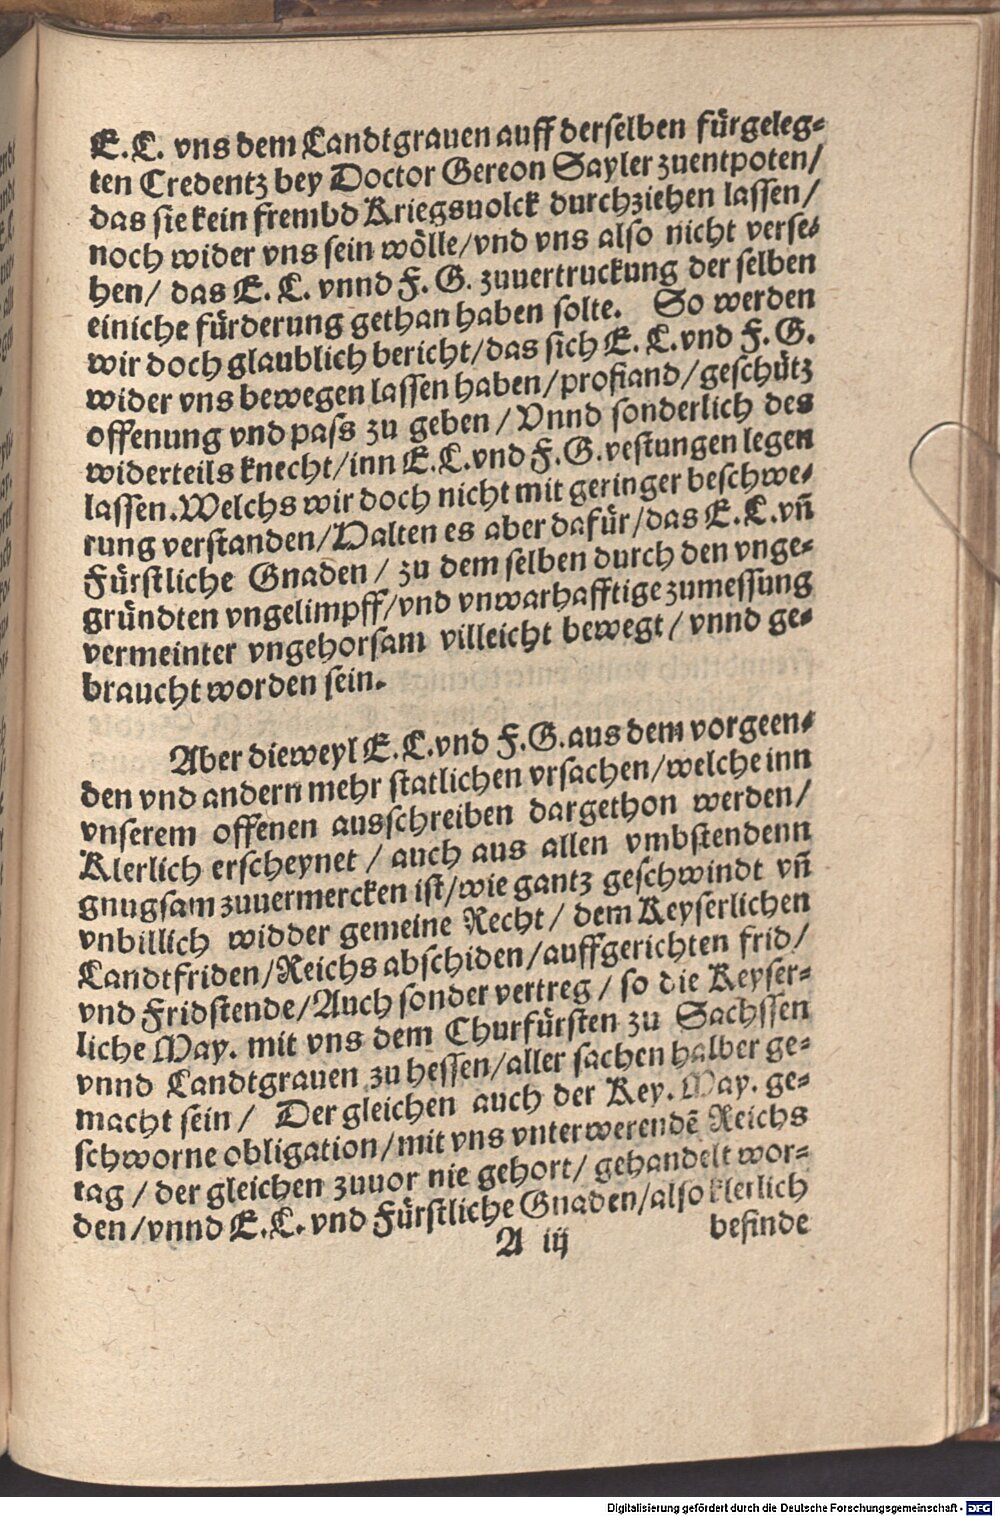 E.L. vns dem Landtgrauen auff derselben fürgeleg-
ten Credentz bey Doctor Gereon Sayler zuentpoten/
das sie kein frembd Kriegsuolck durchziehen lassen/
noch wider vns sein wölle/vnd vns also nicht verse-
hen/ das E. L. vnnd F. G. zuuertruckung der selben
einiche fürderung gethan haben solte. So werden
wir doch glaublich bericht/das sich E. L. vnd F. G.
wider vns bewegen lassen haben/profiand/geschütz
offenung vnd pass zu geben/Vnnd sonderlich des
widerteils knecht/inn E.L.vnd F.G.vestungen legen
lassen.Welchs wir doch nicht mit geringer beschwe-
rung verstanden/Halten es aber dafür/das E.L.vñ
Fürstliche Gnaden / zu dem selben durch den vnge-
gründten vngelimpff/vnd vnwarhafftige zumessung
vermeinter vngehorsam villeicht bewegt/ vnnd ge-
braucht worden sein.
Aber dieweyl E.L.vnd F.G.aus dem vorgeen-
den vnd andern mehr statlichen vrsachen/welche inn
vnserem offenen ausschreiben dargethon werden/
Klerlich erscheynet / auch aus allen vmbstendenn
gnugsam zuuermercken ist/wie gantz geschwindt vñ
vnbillich widder gemeine Recht/ dem Keyserlichen
Landtfriden/Reichs abschiden/auffgerichten frid/
vnd Fridstende/Auch sonder vertreg / so die Keyser-
liche May. mit vns dem Churfürsten zu Sachssen
vnnd Landtgrauen zu hessen/aller sachen halber ge-
macht sein / Der gleichen auch der Key. May. ge-
schworne obligation/mit vns vnter werendẽ Reichs
tag / der gleichen zuuor nie gehort/ gehandelt wor-
den/vnnd E.L. vnd Fürstliche Gnaden/also klerlich
A iij befinde
Digitalisierung gefördert durch die Deutsche Forschungsgemeinschaft - DFG